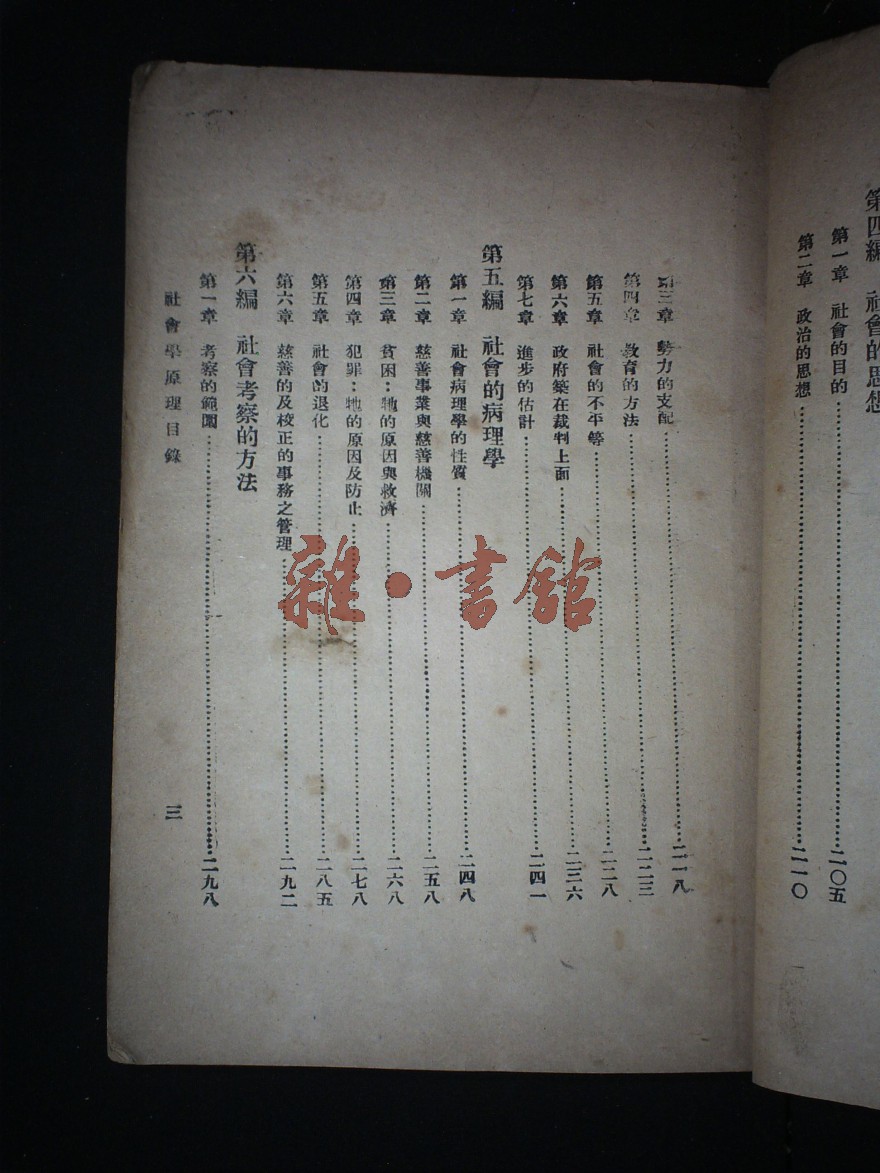 第四編 社會的思想
第一章 社會的目的……二〇五
第二章 政治的思想……二一〇
第三章 勢力的支配……二一八
第四章 教育的方法……二二三
第五章 社會的不平等……二二八
第六章 政府築在裁判上面……二三六
第七章 進步的估計……二四一
第五編 社會的病理學
第一章 社會病理學的性質……二四八
第二章 慈善事業與慈善機關……二五八
第三章 貧困：牠的原因與救濟……二六八
第四章 犯罪：牠的原因及防止……二七八
第五章 社會的退化……二八五
第六章 慈善的及校正的事務之管理……二九二
第六編 社會考察的方法
第一章 考察的範圍……二九八
社會學原理目錄
三
雜·書館